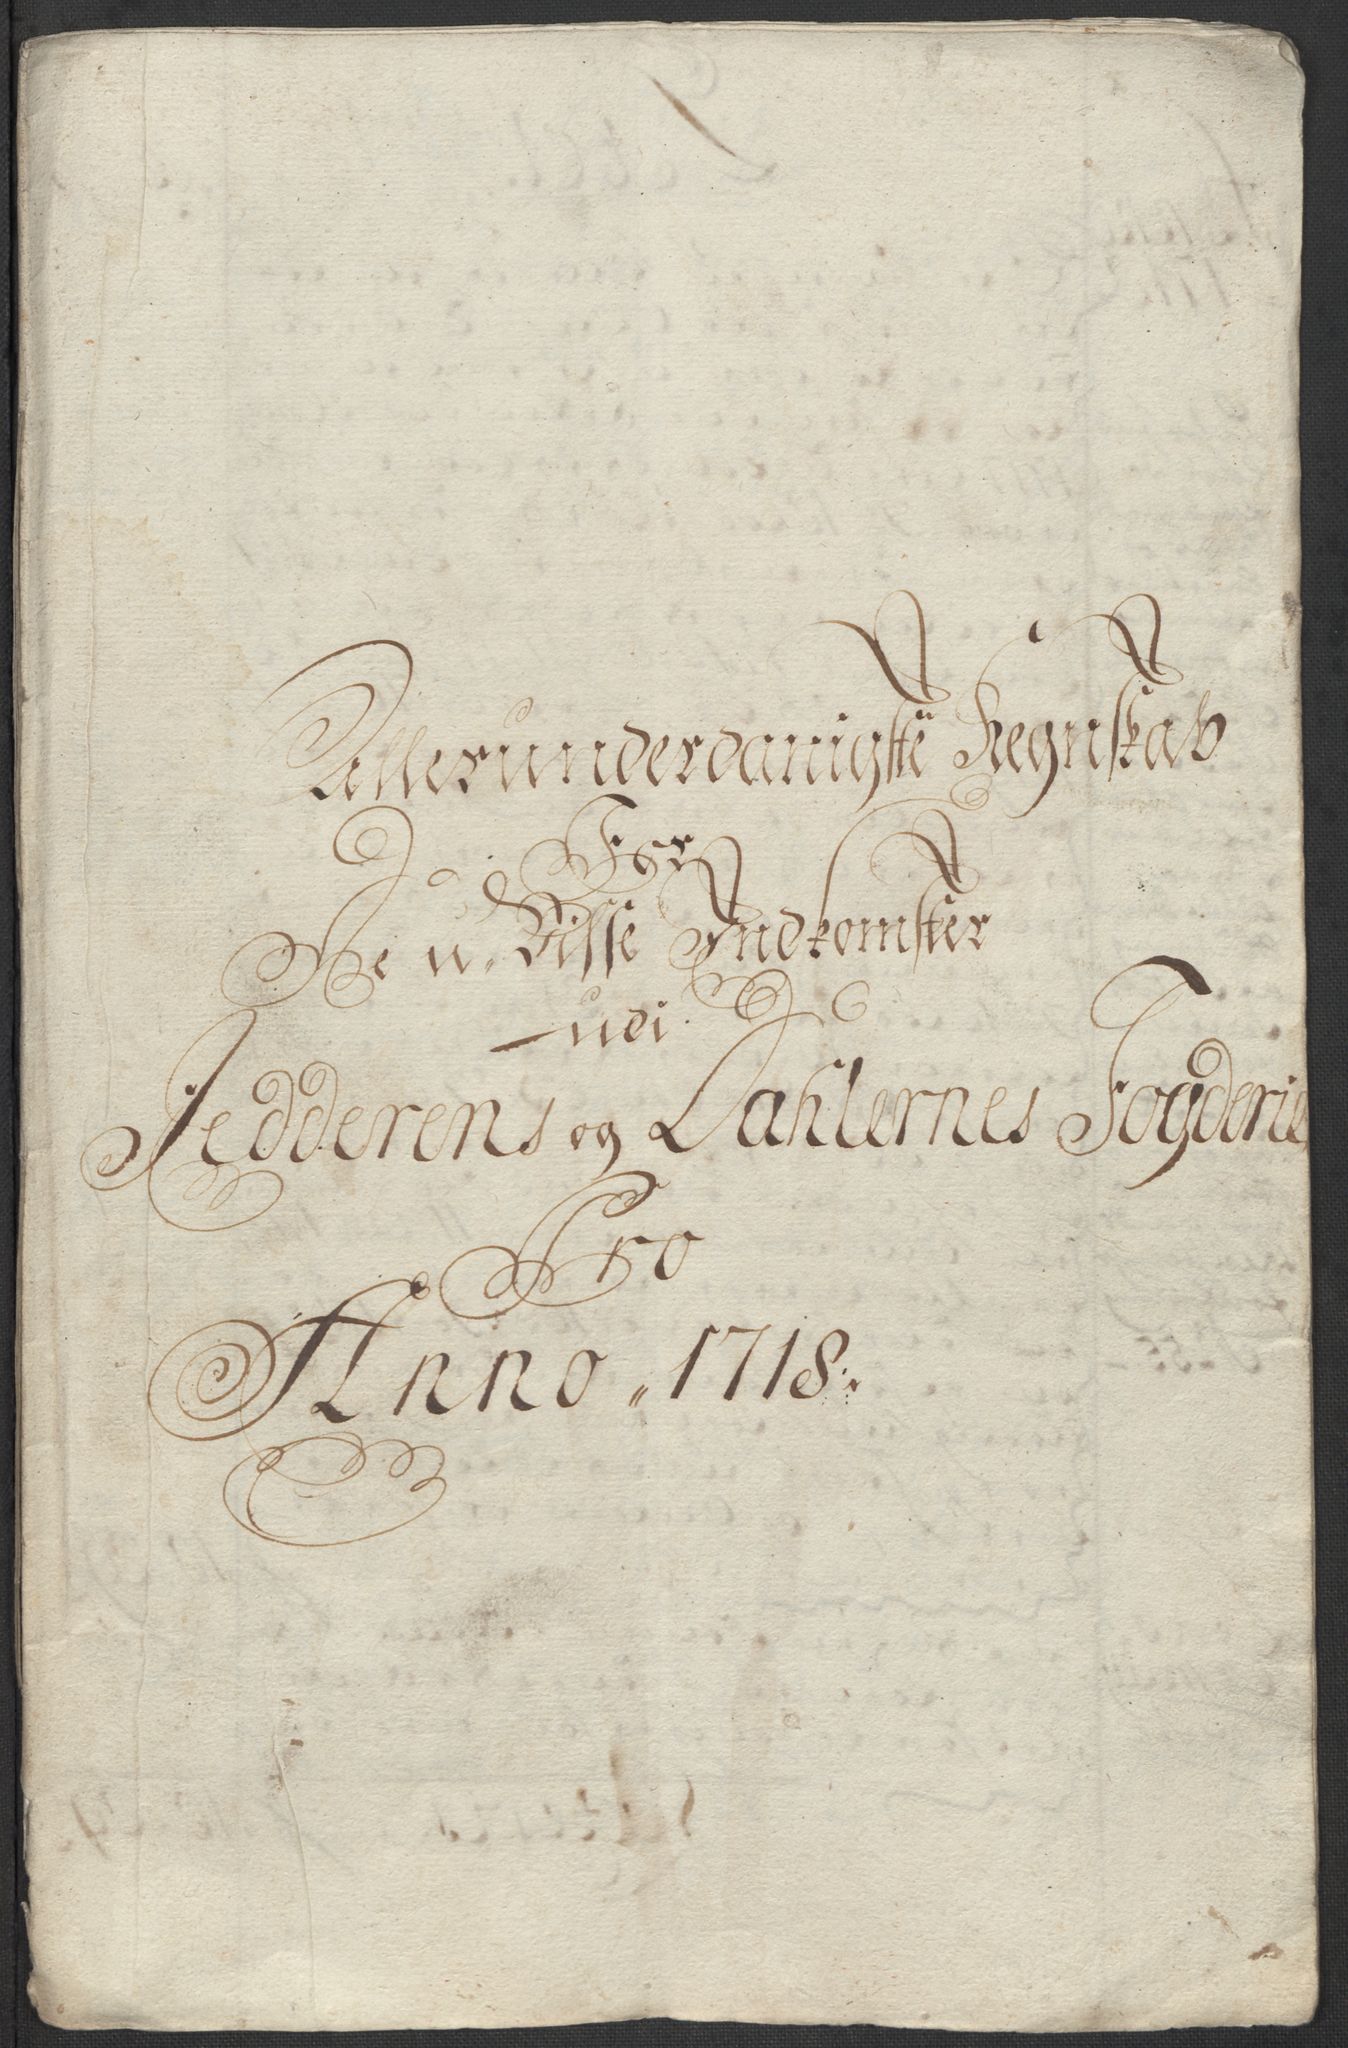 Allerunderdanigste Regnskab
For
De u-Visse Indkomster
udi
Jedderens og Dahlernes Fogderie
Pro
Anno 1718.